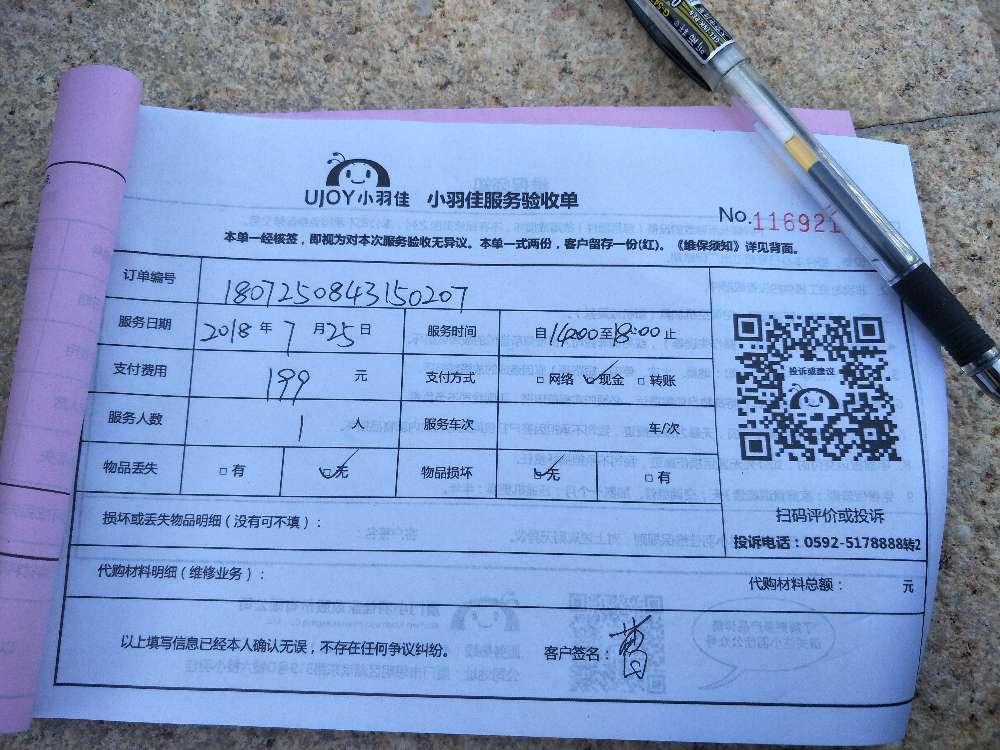 UJOY小羽佳 小羽佳服务验收单
No.116921
本单一经核签，即视为对本次服务验收无异议。本单一式两份，客户留存一份(红)。《维保须知》详见背面。
订单编号 1807250843150207
服务日期 2018 年 7 月 25 日 服务时间 自14:00至18:00止
支付费用 199 元 支付方式 □ 网络 ☑ 现金 □ 转账
服务人数 1 人 服务车次 车/次
物品丢失 □ 有 ☑ 无 物品损坏 ☑ 无 □ 有
投诉或建议
扫码评价或投诉
投诉电话：0592-5178888转2
损坏或丢失物品明细（没有可不填）：
代购材料明细（维修业务）： 代购材料总额： 元
以上填写信息已经本人确认无误，不存在任何争议纠纷。 客户签名：